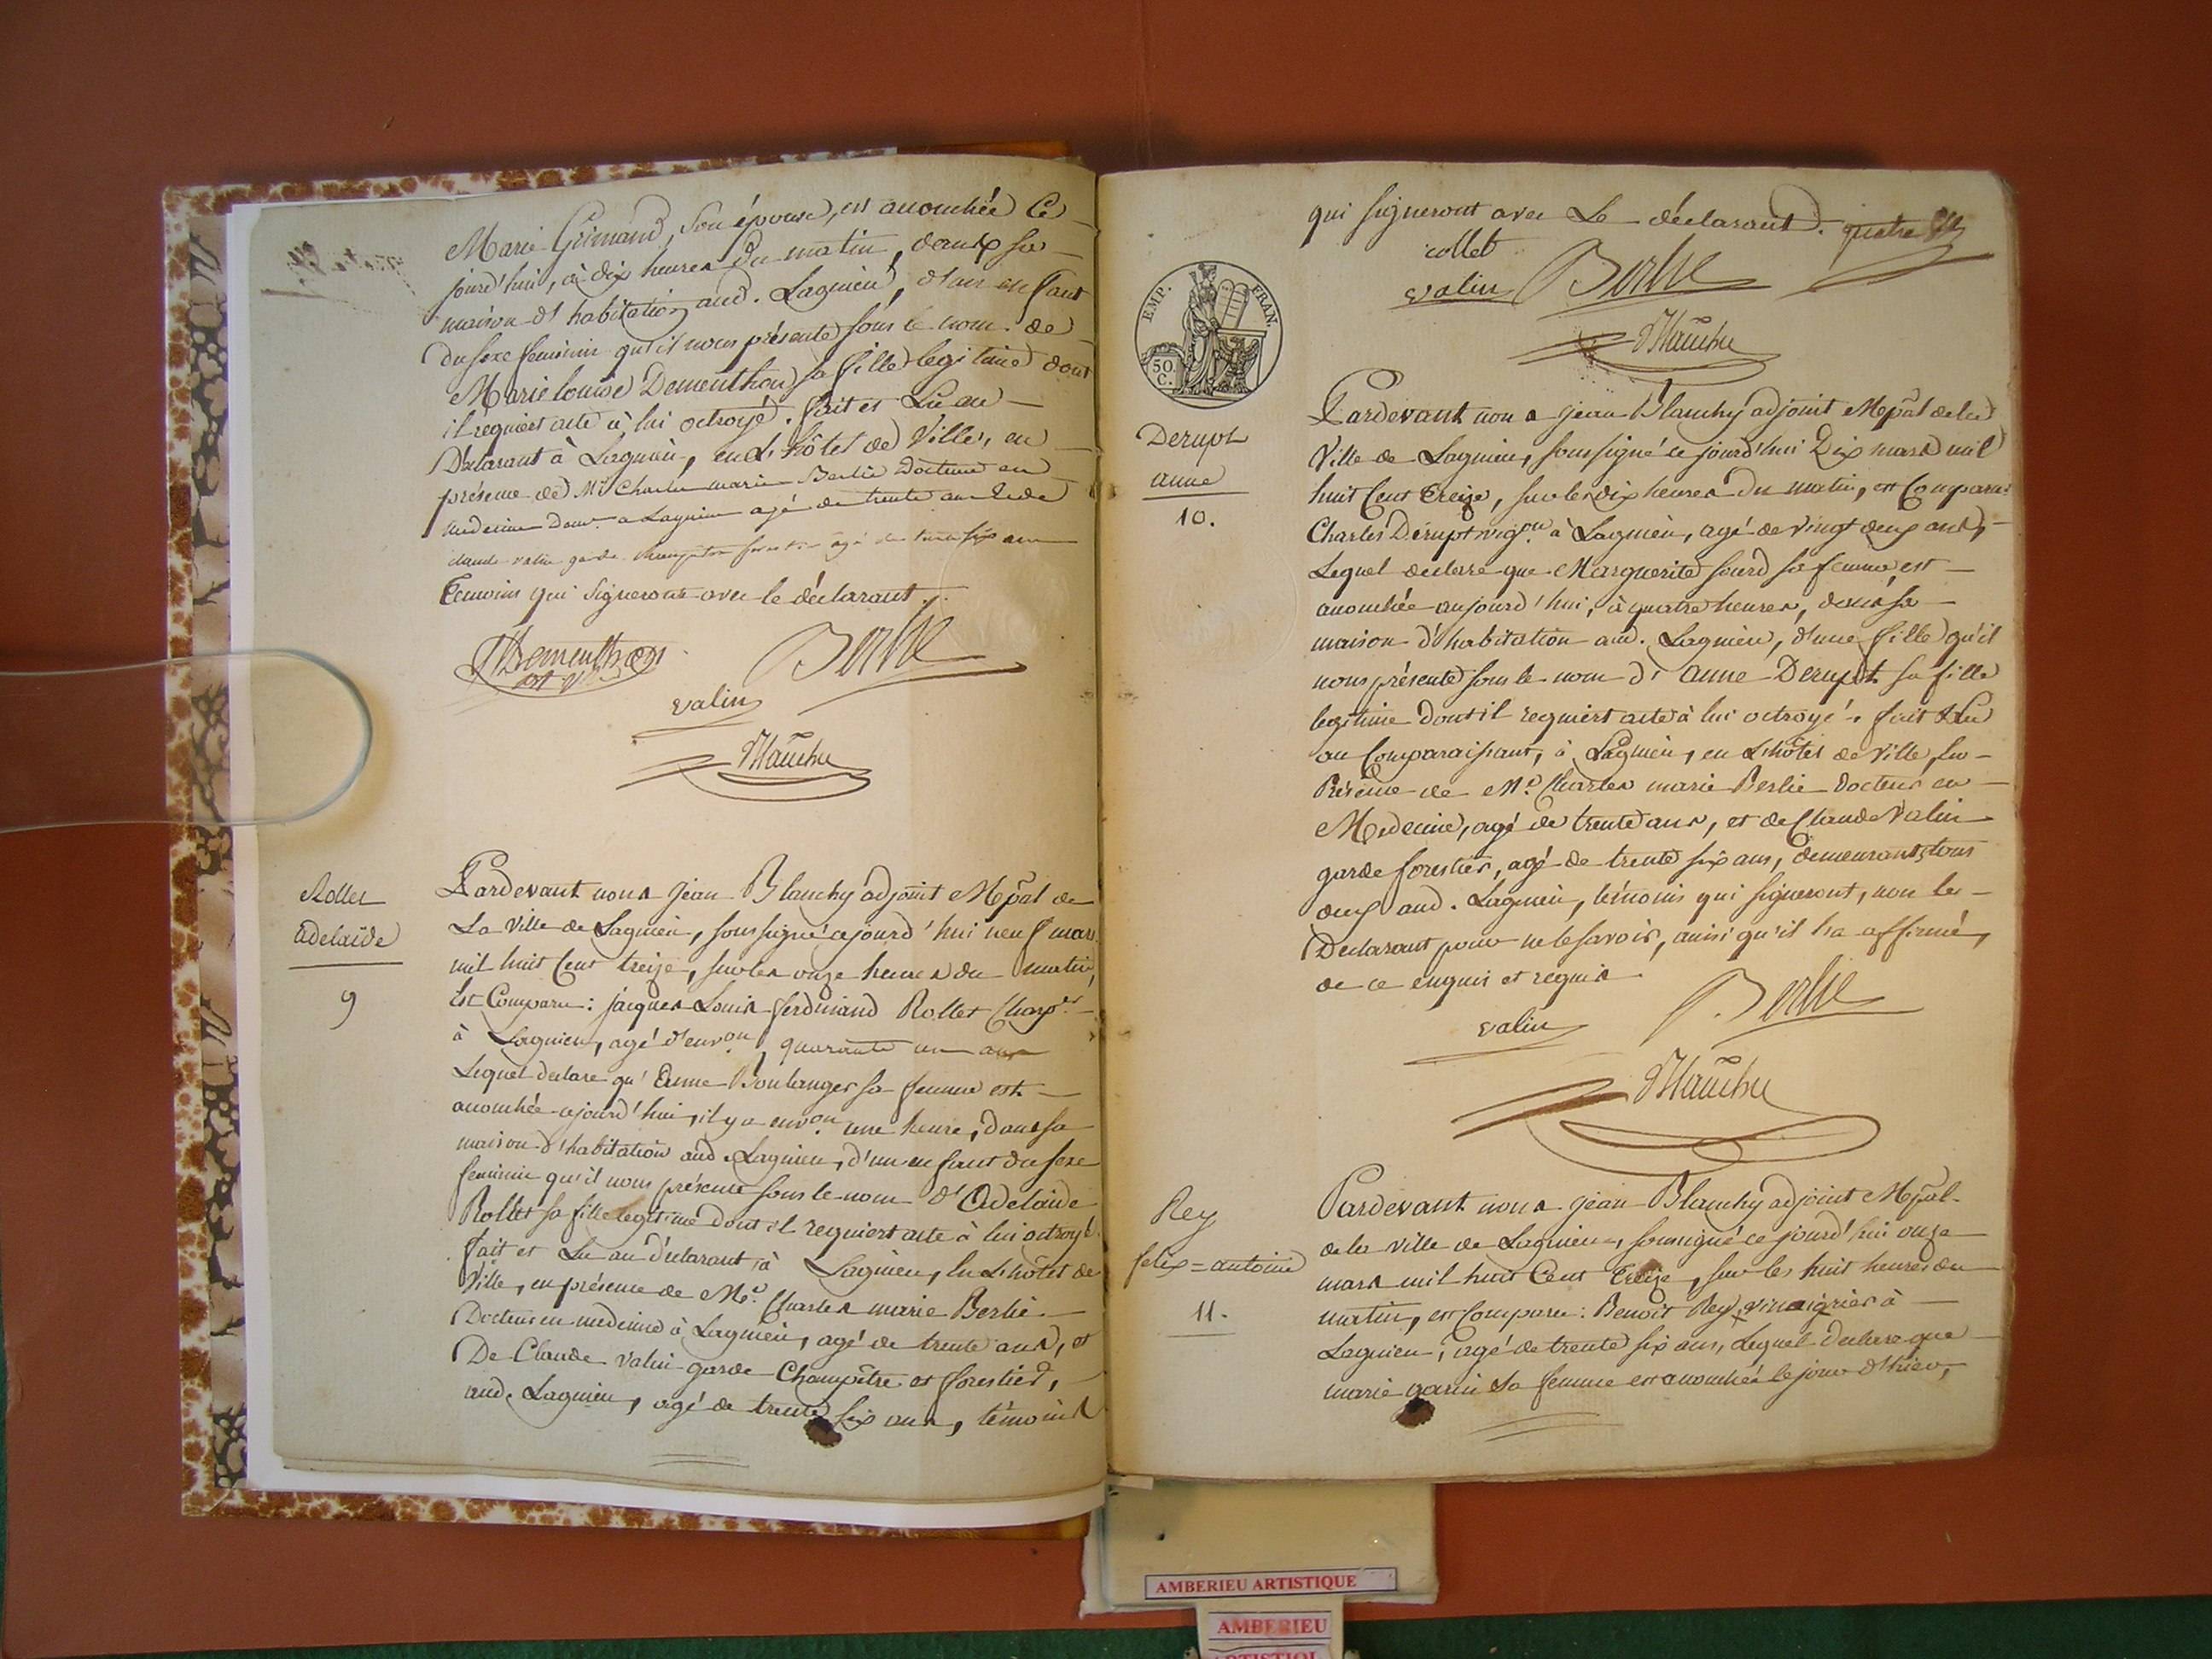 Marie Grimand, son épouse, est accouchée Ce
jourd'hui, à dix heures du matin, dans sa
maison d'habitation aud. Lagnieu, d'un enfant
du sexe feminin qu'il nous présente sous le nom de
Marie louise Dementhon sa fille legitime dont
il requiert acte à lui octroyé. fait et Lu au
Déclarant à Lagnieu, en L'hôtel de Ville, en
présence de Mr. Charles marie Berlie Docteur en
medecine dem.t a Lagnieu agé de trente ans & de
claude valin garde champetre forestier agé de trente six ans
Temoins qui signeront avec le déclarant.
Dementhon
Berlie
valin
Blanchy
Rollet
adelaïde
9
Pardevant nous jean Blanchy adjoint Mepal de
La ville de Lagnieu, soussigné cejourd'hui neuf mars
mil huit Cent treize, sur les onze heures du matin,
Est Comparu: jacques Louis ferdinand Rollet Charp.er
à Lagnieu, agé d'env.on quarante un ans
Lequel declare qu'Anne Boulanger sa femme est
accouchée cejourd'hui, il y a env.on une heure, dans sa
maison d'habitation aud. Lagnieu, d'un enfant du sexe
feminin qu'il nous présente sous le nom d'Adelaide
Rollet sa fille legitime dont il requiert acte à lui octroyé.
fait et Lu au déclarant, à Lagnieu, en L'hôtel de
Ville, en présence de Mr. Charles marie Berlie
Docteur en medecine à Lagnieu, agé de trente ans, et
De Claude valin garde Champêtre et forestier,
aud. Lagnieu, agé de trente six ans, témoins
qui signeront avec Le déclarant. quatre
collet
valin Berlie
Blanchy
EMP. FRAN.
50 C.
Derupt
anne
10.
Pardevant nous jean Blanchy adjoint Mepal de la
Ville de Lagnieu, soussigné ce jourd'hui Dix mars mil
huit Cent treize, sur les dix heures du matin, est Comparu:
Charles Derupt vig.on à Lagnieu, agé de vingt deux ans,
Lequel declare que Marguerite sourd sa femme est
accouchée aujourd'hui, à quatre heures, dans sa
maison d'habitation aud. Lagnieu, d'une fille qu'il
nous présente sous le nom d'anne Derupt sa fille
legitime dont il requiert acte à lui octroyé. fait & Lu
au Comparaissant, à Lagnieu, en L'hôtel de Ville, en
Présence de Mr. Charles marie Berlie docteur en
Medecine, agé de trente ans, et de Claude Valin
garde forestier, agé de trente six ans, demeurants tous
deux aud. Lagnieu, témoins qui signeront, non le
Declarant pour ne le savoir, ainsi qu'il l'a affirmé,
de ce enquis et requis
valin Berlie
Blanchy
Rey
felix=antoine
11.
Pardevant nous jean Blanchy adjoint Mepal
de la ville de Lagnieu, soussigné ce jourd'hui onze
mars mil huit Cent treize, sur les huit heures du
matin, est Comparu: Benoit Rey, vinaigrier à
Lagnieu, agé de trente six ans, Lequel declare que
marie garin sa femme est accouchée le jour d'hier,
AMBERIEU ARTISTIQUE
AMBERIEU
ARTISTIQUE